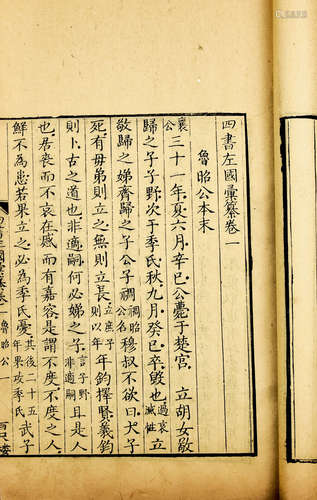 四書左國彙纂卷一
魯昭公本末
襄公三十一年夏六月辛巳公薨于楚宮立胡女敬
歸之子子野次于季氏秋九月癸巳卒毀也過哀滅性立
敬歸之娣齊歸之子公子裯裯昭公名穆叔不欲曰大子
死有母弟則立之無則立長立庶子則以年年鈞擇賢義鈞
則卜古之道也非適嗣何必娣之子言子野非適嗣且是人
也居喪而不哀在慼而有嘉容是謂不度不度之人
鮮不為患若果立之必為季氏憂其後二十五年果攻季氏武子
魯昭公
一